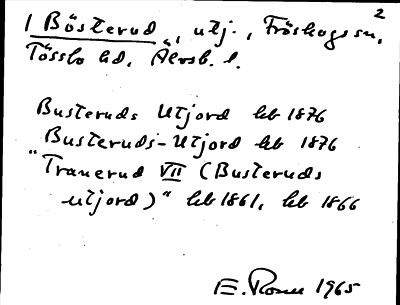 2
1 Bösterud, utj., Fröskogs sn,
Tössbo hd, Älvsb. l.
Busteruds Utjord hb 1876
Busteruds-Utjord hb 1876
"Tranerud VII (Busteruds
utjord)" hb 1861, hb 1866
E. Rosell 1965